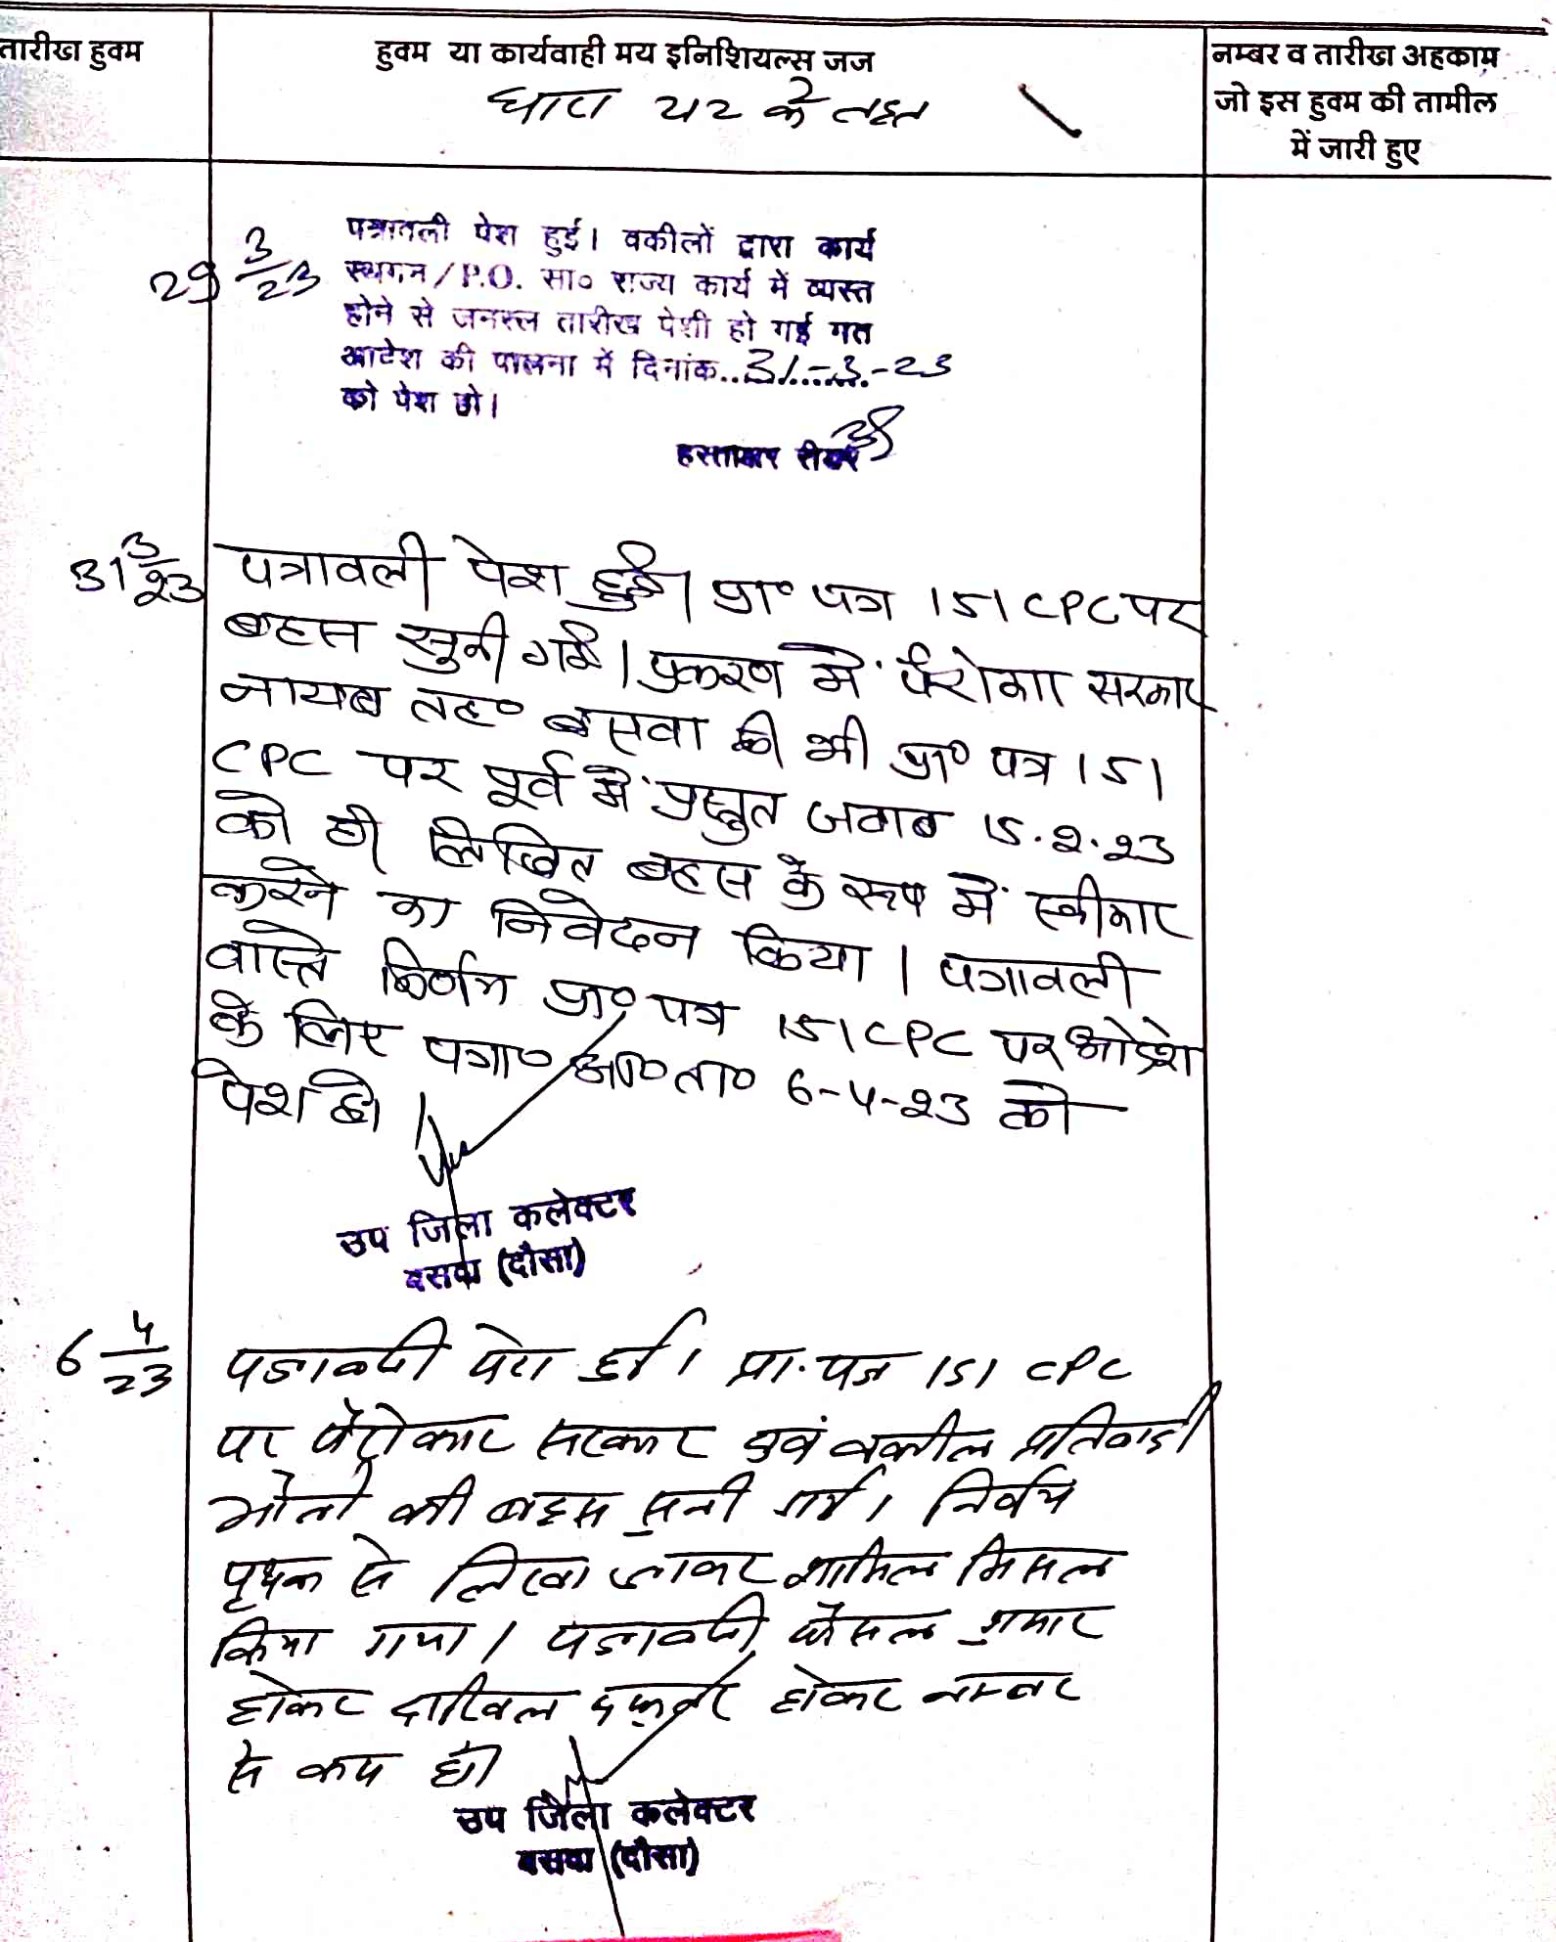 तारीख हुक्म
हुक्म या कार्यवाही मय इनिशियल्स जज
नम्बर व तारीख अहकाम
जो इस हुक्म की तामील
में जारी हुए
धारा 212 के तहत
29 3/23
पत्रावली पेश हुई। वकीलों द्वारा कार्य
स्थगन/P.O. सा० राज्य कार्य में व्यस्त
होने से जनरल तारीख पेशी हो गई गत
आदेश की पालना में दिनांक..31-3-23
को पेश हो।
हस्ताक्षर रीडर
31 3/23
पत्रावली पेश हुई। प्रा० पत्र 151 CPC पर
बहस सुनी गई। प्रकरण में पैरोकार सरकार
नायब तह० बसवा की भी प्रा० पत्र 151
CPC पर पूर्व में प्रस्तुत जवाब 15.2.23
को ही लिखित बहस के रूप में स्वीकार
करने का निवेदन किया। पत्रावली
वास्ते निर्णय प्रा० पत्र 151 CPC पर आदेश
के लिए पत्रा० ता० 6-4-23 को
पेश हो।
उप जिला कलेक्टर
बसवा (दौसा)
6 4/23
पत्रावली पेश हुई। प्रा. पत्र 151 CPC
पर पैरोकार सरकार एवं वकील प्रतिवादी
की बहस सुनी गई। निर्णय
पृथक से लिखा जाकर शामिल मिसल
किया गया। पत्रावली फैसल शुमार
होकर दाखिल दफ्तर होकर नम्बर
से कम हो।
उप जिला कलेक्टर
बसवा (दौसा)